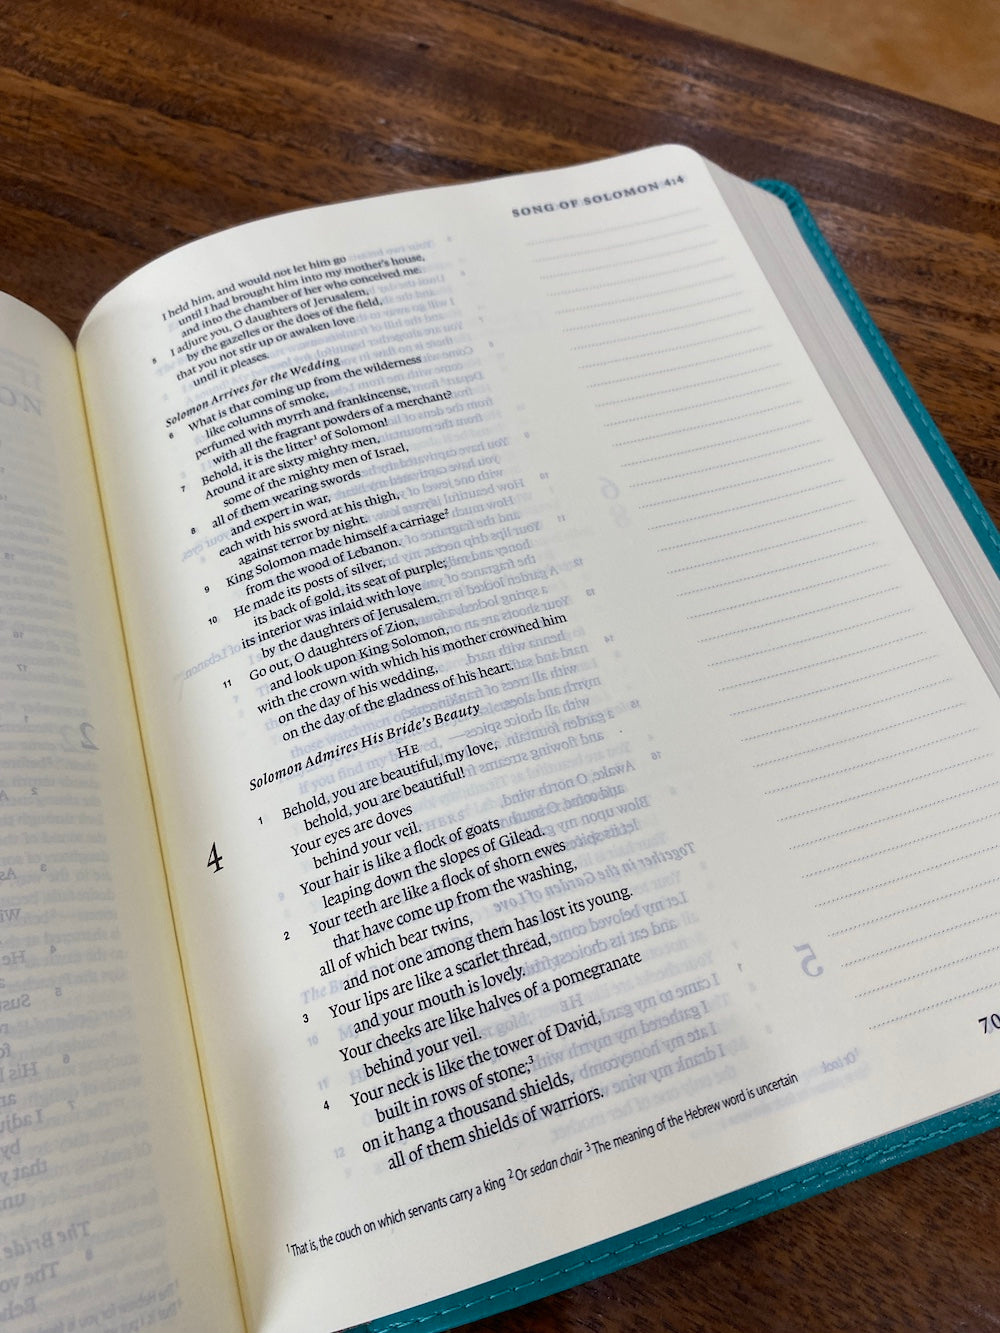 SONG OF SOLOMON 4:4
I held him, and would not let him go
until I had brought him into my mother's house,
and into the chamber of her who conceived me.
5 I adjure you, O daughters of Jerusalem,
by the gazelles or the does of the field,
that you not stir up or awaken love
until it pleases.
Solomon Arrives for the Wedding
6 What is that coming up from the wilderness
like columns of smoke,
perfumed with myrrh and frankincense,
with all the fragrant powders of a merchant?
7 Behold, it is the litter¹ of Solomon!
Around it are sixty mighty men,
some of the mighty men of Israel,
8 all of them wearing swords
and expert in war,
each with his sword at his thigh,
against terror by night.
9 King Solomon made himself a carriage²
from the wood of Lebanon.
10 He made its posts of silver,
its back of gold, its seat of purple;
its interior was inlaid with love
by the daughters of Jerusalem.
11 Go out, O daughters of Zion,
and look upon King Solomon,
with the crown with which his mother crowned him
on the day of his wedding,
on the day of the gladness of his heart.
Solomon Admires His Bride's Beauty
HE
4
1 Behold, you are beautiful, my love,
behold, you are beautiful!
Your eyes are doves
behind your veil.
Your hair is like a flock of goats
leaping down the slopes of Gilead.
2 Your teeth are like a flock of shorn ewes
that have come up from the washing,
all of which bear twins,
and not one among them has lost its young.
3 Your lips are like a scarlet thread,
and your mouth is lovely.
Your cheeks are like halves of a pomegranate
behind your veil.
4 Your neck is like the tower of David,
built in rows of stone;³
on it hang a thousand shields,
all of them shields of warriors.
¹ That is, the couch on which servants carry a king ² Or sedan chair ³ The meaning of the Hebrew word is uncertain